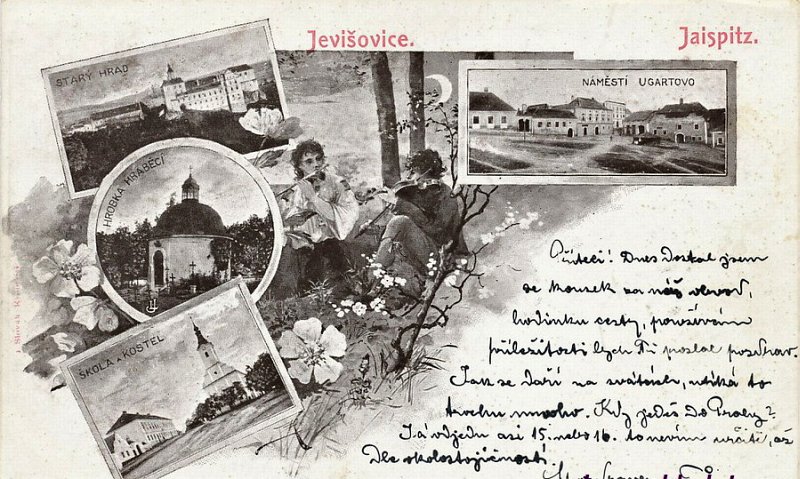 Jevišovice.
Jaispitz.
STARÝ HRAD
NÁMĚSTÍ UGARTOVO
HROBKA HRABĚCÍ
ŠKOLA A KOSTEL
Příteli! Dnes Dostal jsem
se kousek za náš obvod,
hodinku cesty, používám
příležitosti bych Ti poslal pozdrav.
Jak se Daří na svátcích, utíká to
trochu mnoho. Kdy jedeš Do Prahy?
Já odjedu asi 15. nebo 16. to nevím určitě, až
Dle okolostojíčností